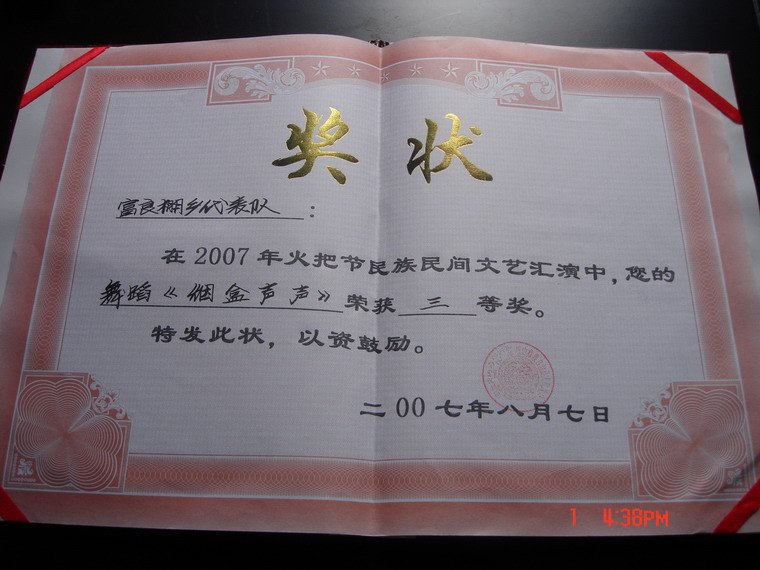 奖状
富良棚乡代表队：
在2007年火把节民族民间文艺汇演中，您的
舞蹈《烟盒声声》荣获三等奖。
特发此状，以资鼓励。
二00七年八月七日
1 4:38PM